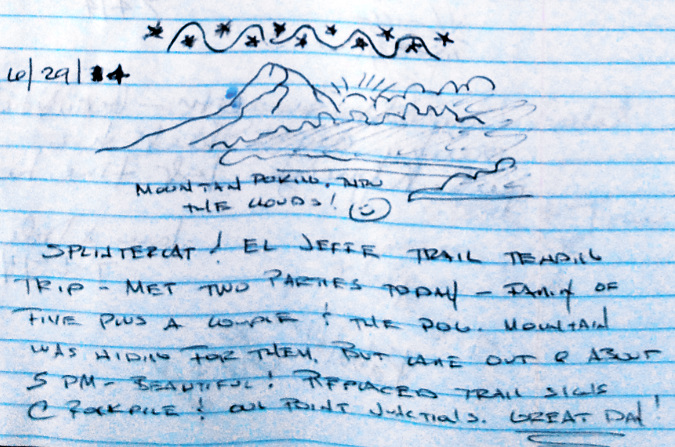 6/29/14
MOUNTAIN POKING INTO
THE CLOUDS!
SPLINTERCAT & EL JEFFE TRAIL TENDING
TRIP - MET TWO PARTIES TODAY - FAMILY OF
FIVE PLUS A COUPLE & THE DOG. MOUNTAIN
WAS HIDING FOR THEM, BUT CAME OUT @ ABOUT
5 PM - BEAUTIFUL! REPLACED TRAIL SIGNS
@ ROCKPILE & OWL POINT JUNCTIONS. GREAT DAY!